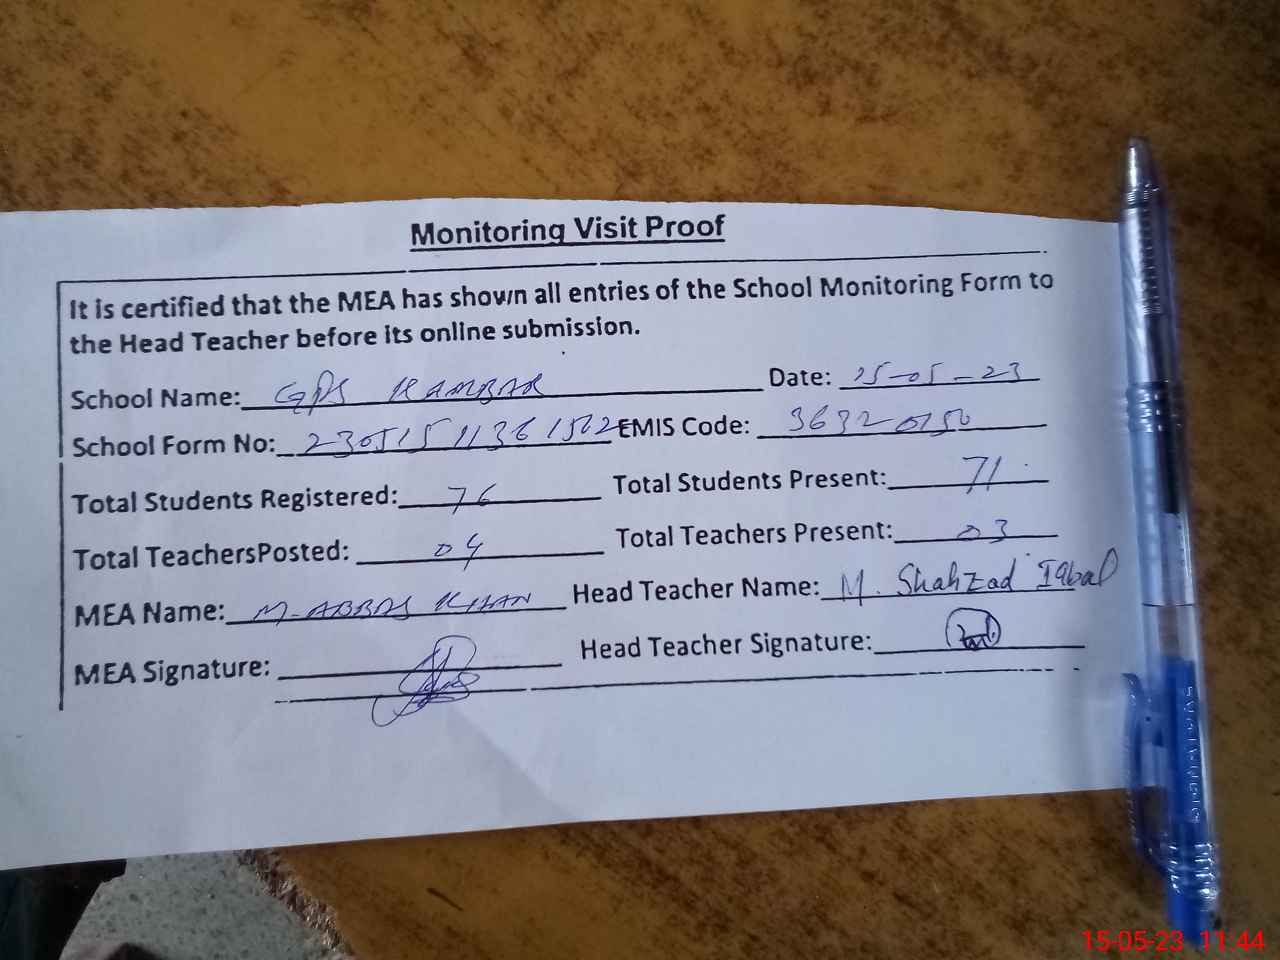 Monitoring Visit Proof
It is certified that the MEA has shown all entries of the School Monitoring Form to
the Head Teacher before its online submission.
School Name: GPS KAMBAR Date: 15-05-23
School Form No: 23051511361502 EMIS Code: 36320150
Total Students Registered: 76 Total Students Present: 71
Total TeachersPosted: 04 Total Teachers Present: 03
MEA Name: M. ABBAS KHAN Head Teacher Name: M. Shahzad Iqbal
MEA Signature: Head Teacher Signature:
SIGNATURE
15-05-23 11:44